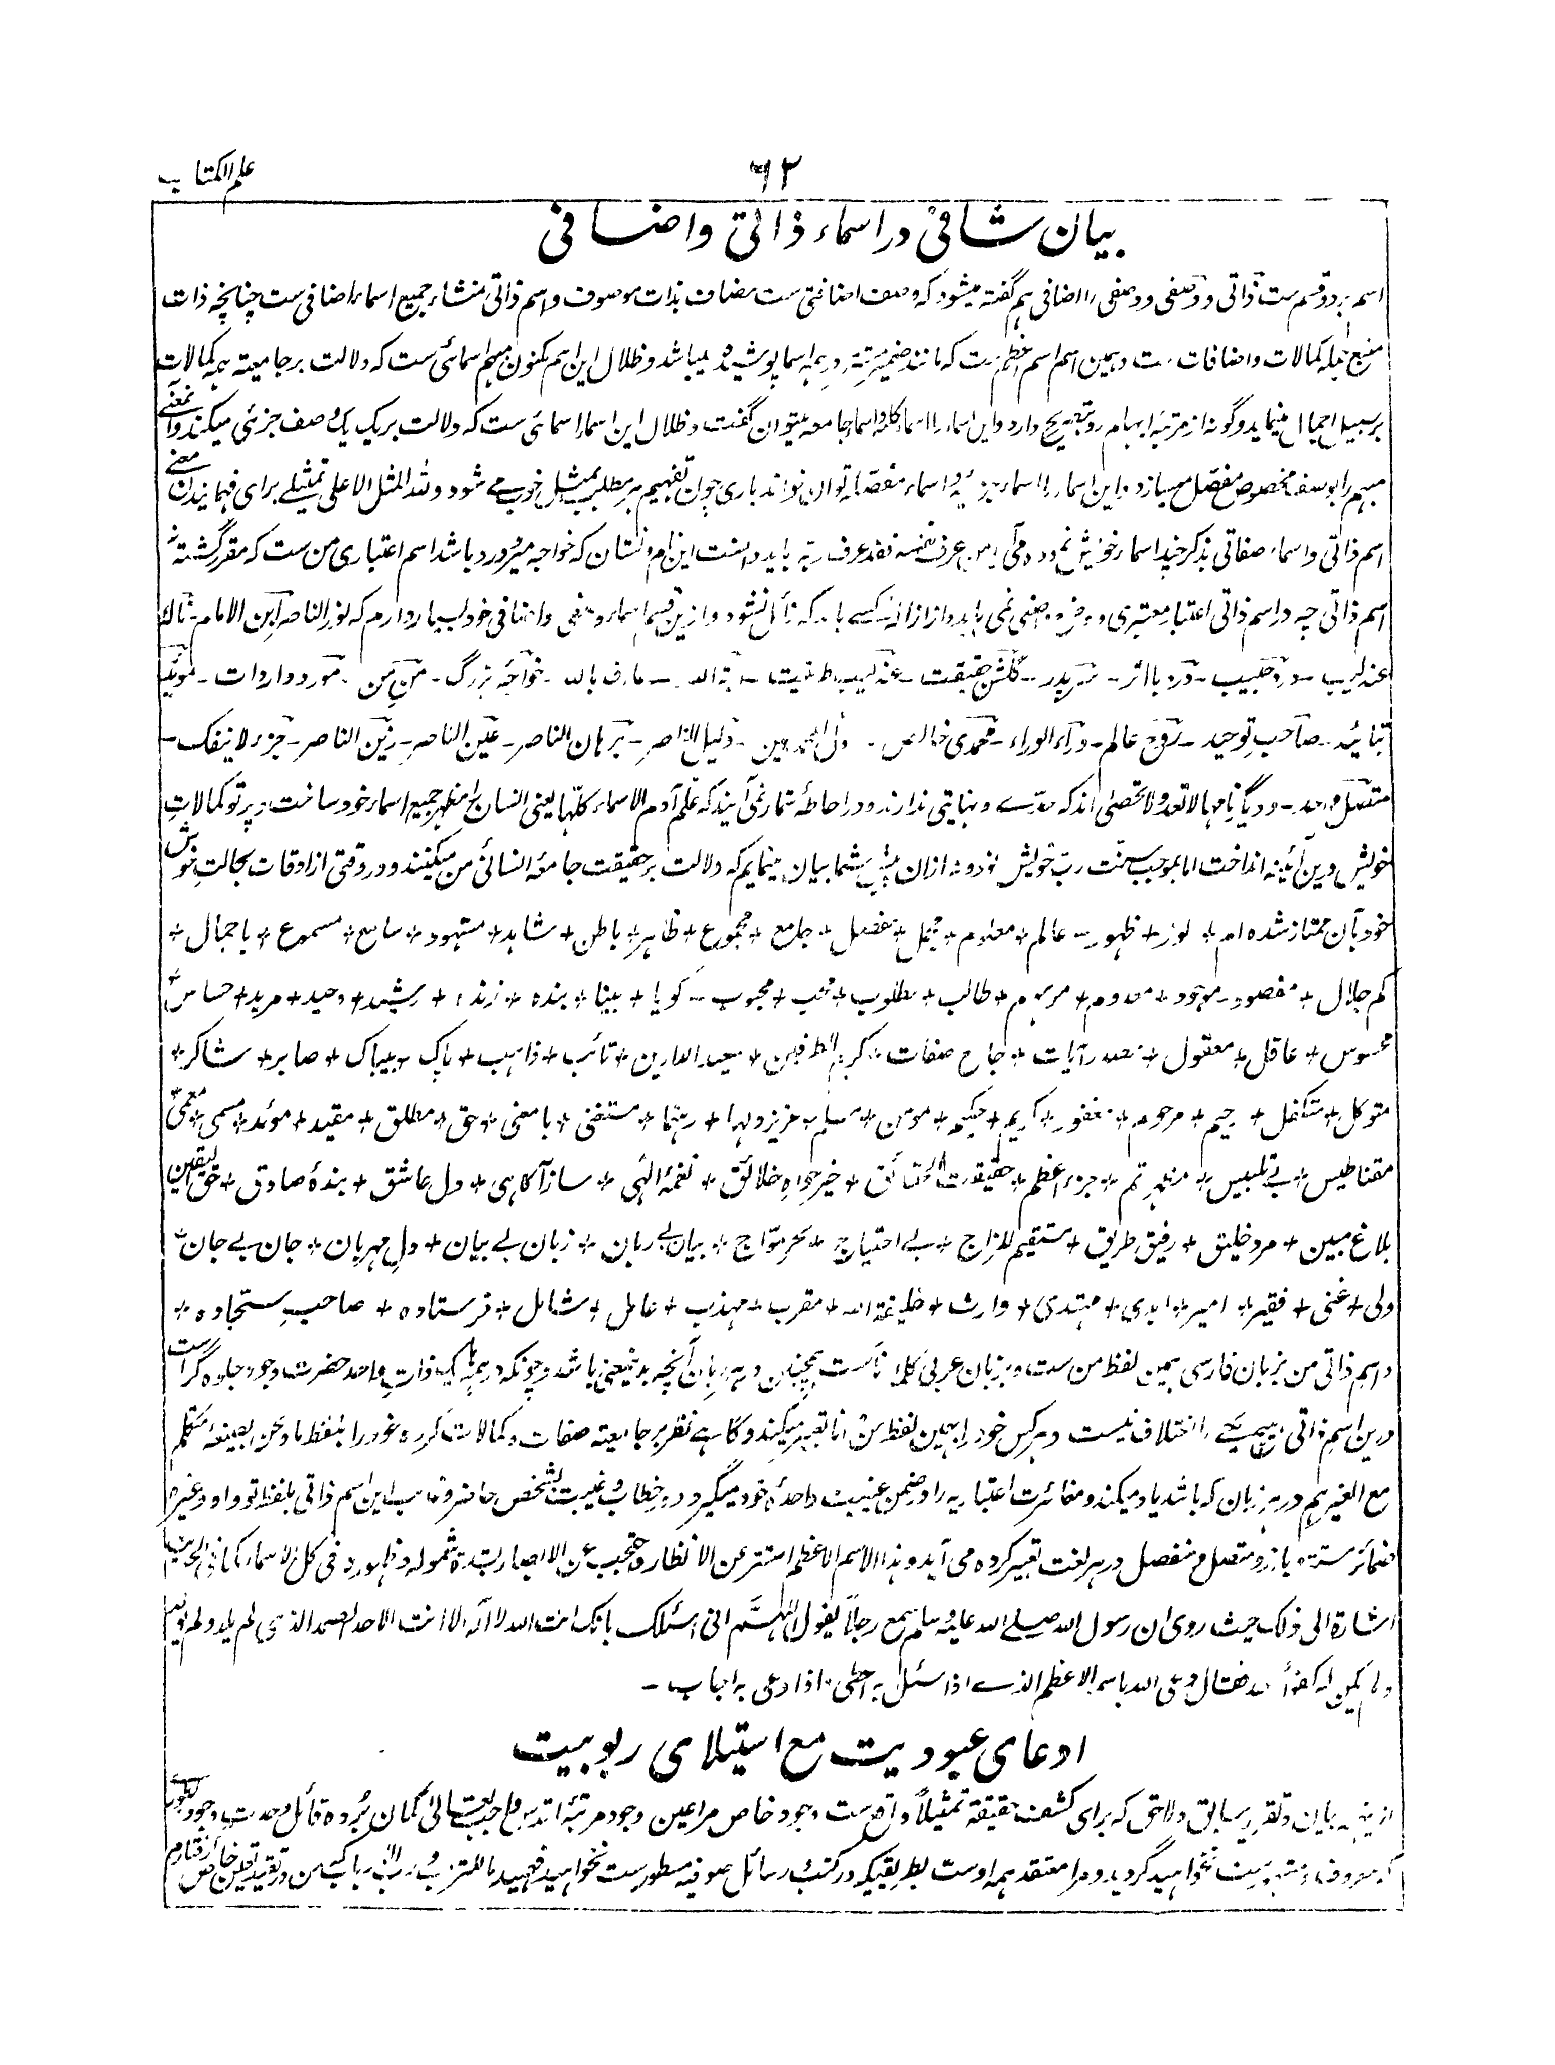 علم الکتاب
۶۲
بیان شافی در اسماء ذاتی و اضافی
اسم بر دو قسم ست ذاتی و وصفی و وصفی را اضافی هم گفته میشود که وصف اضافتی ست مضاف بذات موصوف و اسم ذاتی منشاء جمیع اسماء اضافی ست چنانچه ذات
منبع جمله کمالات و اضافات ست و همین اسم اسم اعظم ست که مانند ضمیر مستتر در همه اسما پوشیده میباشد و ظلال این اسم مکنون مبهم اسمائی ست که دلالت بر جامعیته همه کمالات
بر سبیل اجمال مینماید و گونه از مرتبه ابهام رو بتصریح دارد و این اسماء را اسماء کلیه و اسماء جامعه میتوان گفت و ظلال این اسما اسمائی ست که دلالت بر یک یک وصف جزئی میکند و آن معنے
مبهم را بوصف مخصوص مفصل میسازد و این اسما را اسماء جزئیه و اسماء مفصله توان خواند باری چون تفهیم هر مطلب بمثل خوب مے شود و لله المثل الاعلی تمثیلے برای فهمانیدن معنے
اسم ذاتی و اسماء صفاتی بذکر چند اسماء خویش نموده می آید من عرف نفسه فقد عرف ربه باید دانست این نام و نشان که خواجه میر درد باشد اسم اعتباری من ست که مقرر گشته نه
اسم ذاتی چه در اسم ذاتی اعتبار معتبری و وضع واضعی نمی باید و از ازاله کسے باید که زائل نشود و ازین قسم اسماء وصفی و اضافی خود بسیار دارم که نور الناصر ابن الامام خاک
عندلیب - درد حبیب - درد با اثر - گلشن حقیقت - عندلیب طریقت - آیة الله - عارف بالله - خواجه بزرگ - من من - مورد واردات - موئید
صاحب توحید - روح عالم - وراء الوراء - محمدی خالص - دلیل الناصر - برهان الناصر - عین الناصر - زین الناصر - جزء لا ینفک -
و دیگر نامها لا تعد و لا تحصی اند که حدے و نهایتی ندارند و در احاطه شمار نمی آیند که علم آدم الاسماء کلها یعنی انسان را مظهر جمیع اسماء خود ساخت و پرتو کمالات
خویش درین آئینه انداخت اما بموجب سنت رب خویش نود و نه ازان پیش شما بیان مینمایم که دلالت بر حقیقت جامعه انسانی من میکنند و در وقتی از اوقات بحالت خوش
خود بآن ممتاز شده ام + نور + ظهور - عالم + معلوم + مجمل + مفصل + جامع + مجموع + ظاهر + باطن + شاهد + مشهود + سامع + مسموع + با جمال +
کم جلال + مقصود - موجود + معدوم + مرحوم + طالب + مطلوب + محب + محبوب - گویا + بینا + بنده + زنده + رشید + وحید + مرید + حساس
محسوس + عاقل + معقول + مصدر آیات + جامع صفات + کریم الطرفین + سعید الدارین + تائب + ذاهب + پاک + بیباک + صابر + شاکر +
متوکل + متکفل + رحیم + مرحوم + مغفور + کریم + حکیم + مومن + مسلم + عزیز دلها + رهنما + مستغنی + با معنی + حق + مطلق + مقید + موئد + مسمی + معمی
مقناطیس + بے تلبیس + مظهر تم + جزء اعظم + حقیقت الحقائق + خیر خواه خلائق + نغمهٔ الهی + ساز آگاهی + دل عاشق + بندهٔ صادق + حق الیقین
بلاغ مبین + مرد خلیق + رفیق طریق + مستقیم المزاج + بے احتیاج + بحر مواج + بیان بے زبان + زبان بے بیان + دل مهربان + جان بے جان
ولی + غنی + فقیر + امیر + ابدی + مبتدی + وارث + خلیفة الله + مقرب + مهذب + عامل + شامل + فرستاده + صاحب سجاده +
و اسم ذاتی من بزبان فارسی همین لفظ من ست و بزبان عربی کلمه انا ست همچنین در هر زبان آنچه بدینمعنی باشد و چونکه در همه یک ذات واحد حضرت وجود جلوه گر است
درین اسم ذاتی هیچ یکے را اختلاف نیست و هر کس خود را بهمین لفظ من و انا تعبیر میکند و گاهے نظر بر جامعیته صفات و کمالات کرده خود را بلفظ ما و نحن بصیغه متکلم
مع الغیر هم در هر زبان که باشد یاد میکند و مغائرت اعتباریه را در ضمن عینیت واحده خود میگیرد و در خطاب و غیبت لشخص حاضر و غائب این اسم ذاتی بلفظ تو و او و غیره
ضمائر مستتر و بارز و متصل و منفصل در هر لغت تعبیر کرده می آید و هذا الاسم الاعظم استتر عن الانظار و احتجب عن الابصار لشدة شموله و ظهوره فی کل الاسماء کما فی الحدیث
اشارة الی ذلک حیث روی ان رسول الله صلے الله علیه وسلم سمع رجلاً یقول اللهم انی اسئلک بانک انت الله لا اله الا انت الاحد الصمد الذی لم یلد و لم یولد
و لم یکن له کفواً احد فقال دعی الله باسمه الاعظم الذے اذا سئل به اعطی و اذا دعی به اجاب -
ادعای عبودیت مع استیلای ربوبیت
ازینهمه بیان و تقریر سابق و لاحق که برای کشف حقیقة تمثیلاً واقع ست وجود خاص مرا عین وجود مرتبهٔ اقدس واجب تعالی گمان نبرده قائل وحدت وجود
که معروف و مشهور ست نخواهید گردید و مرا معتقد همه اوست بطریقیکه در کتب و رسائل صوفیه مسطور ست نخواهید فهمید